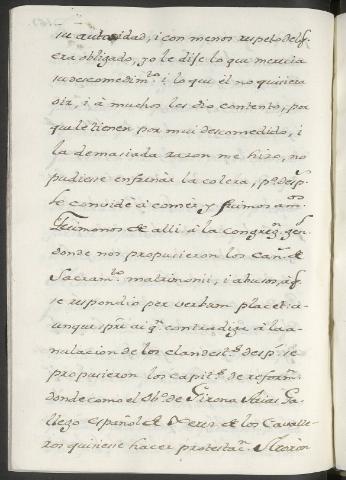 su autoridad, i con menos respeto del q̃
era obligado, yo le dije lo que merecia
su descomedim.to i lo que él no quisiera
oir, i à muchos les dio contento, por
que le tienen por mui descomedido, i
la demasiada razon me hizo, no
pudiese enfrenàr la colera, p.o desp.s
le convidè à comèr y fuimos am.os
Fuimonos de alli à la congreg.n gen.l
donde nos propusieron los can.s de
Sacram.to matrimonii, i abusos, à q̃
se respondio per verbum placet: a-
unque hai q.n contradiga à la a-
nulacion de los clandest.s desp.s se
propusieron los capit.s de reform.n
donde como el Ob.o de Girona Arias Ga-
llego Español de Xerez de los Cavalle-
ros quisiese hacer protestac.n